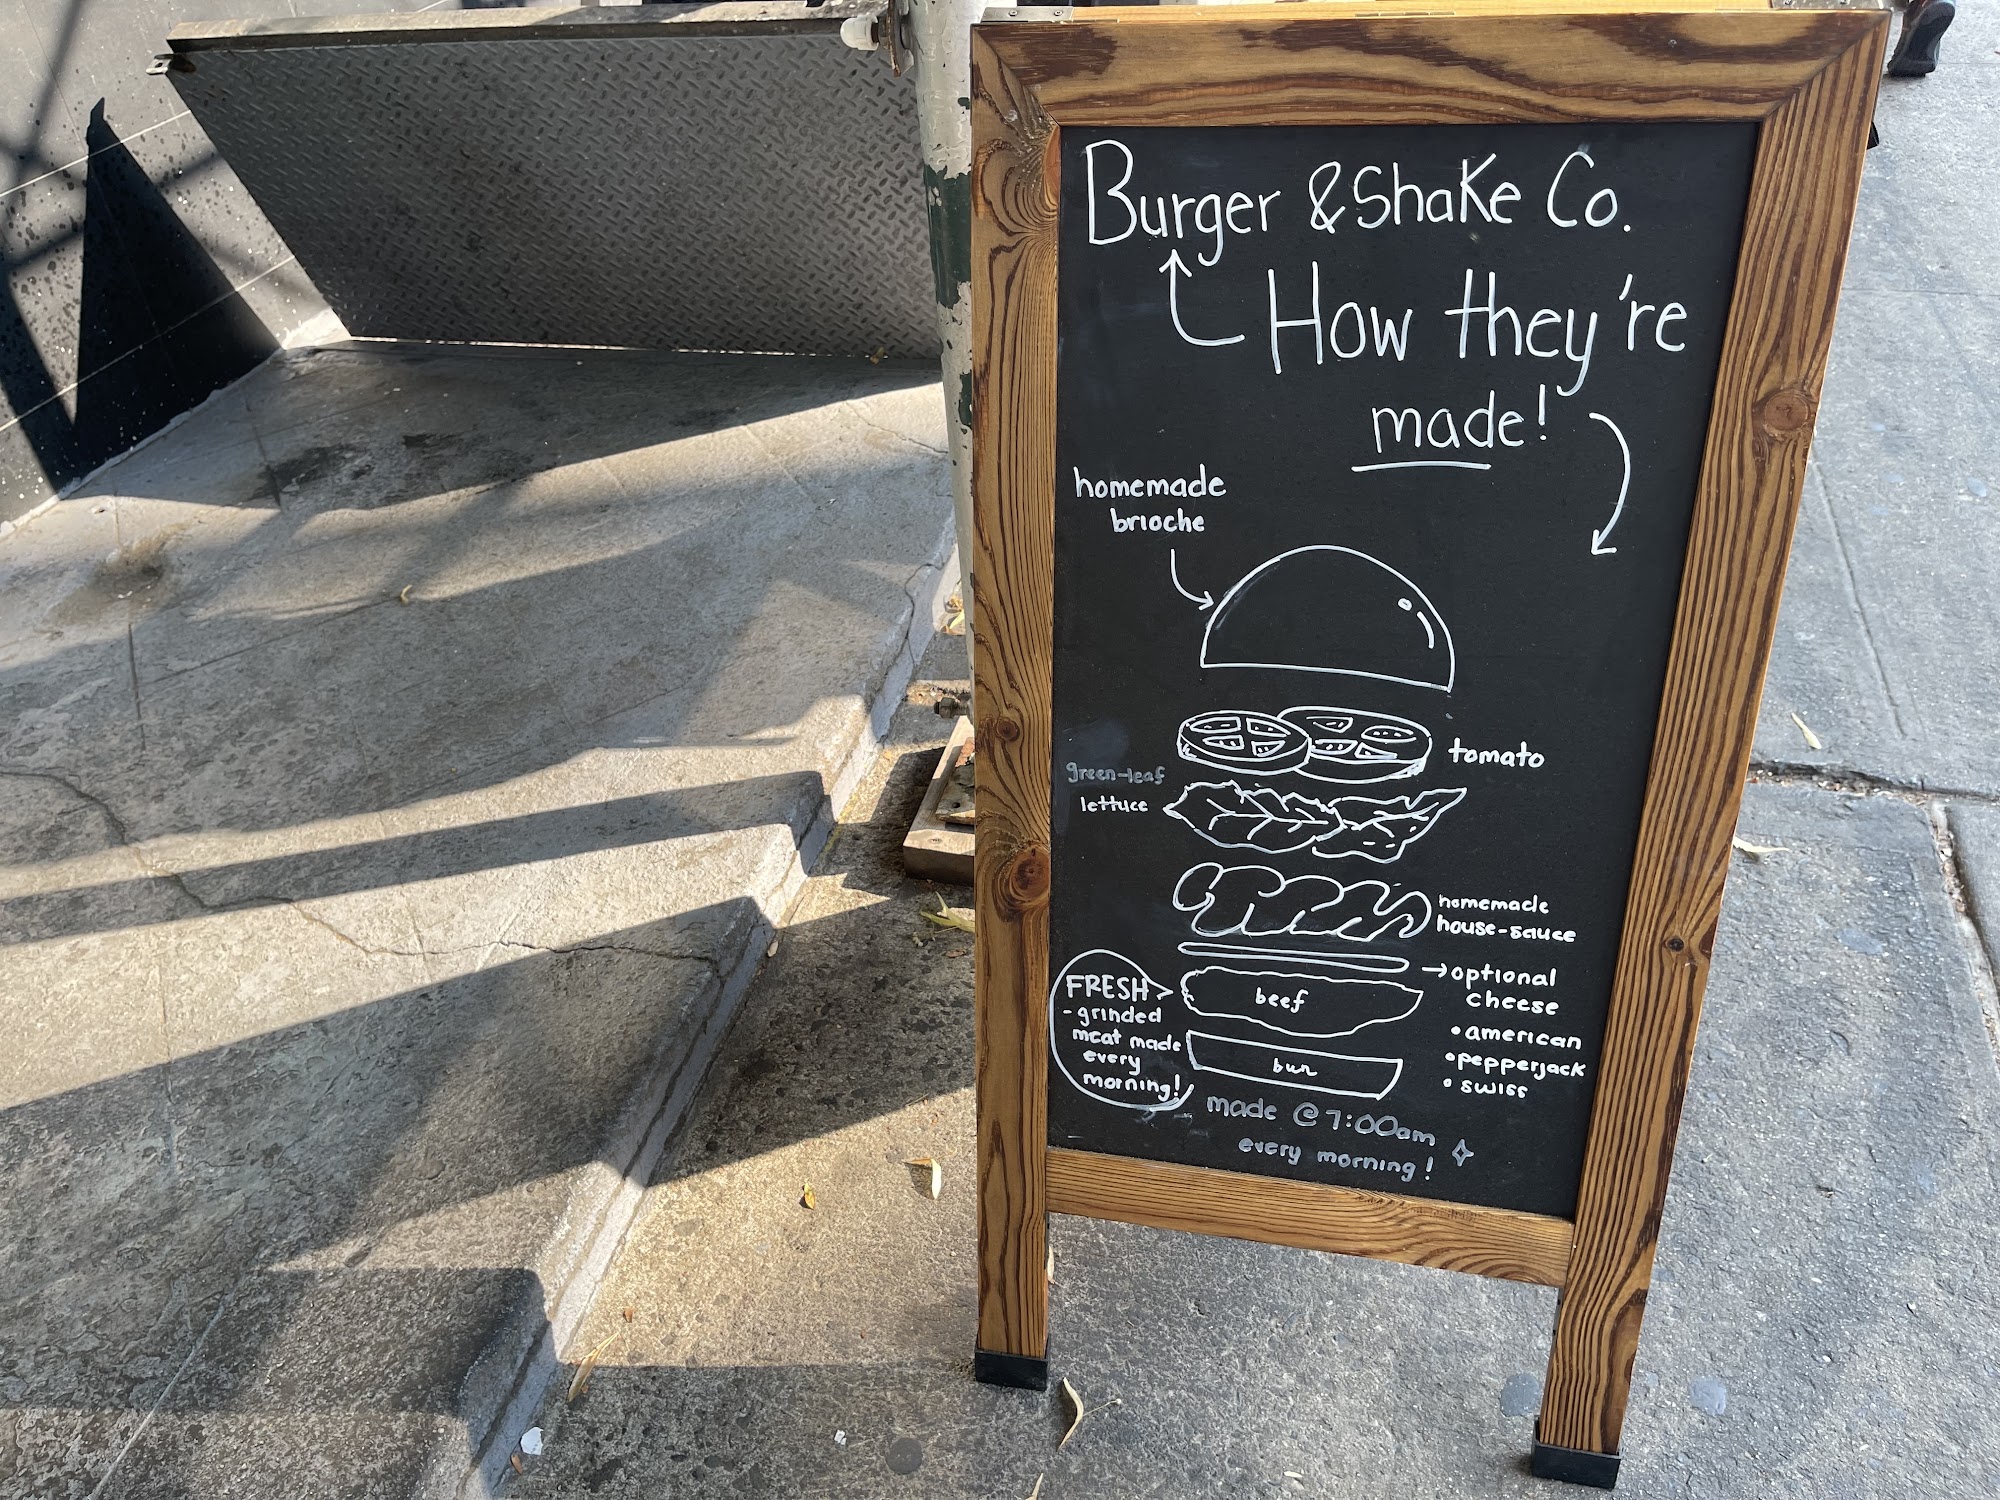 Burger & Shake Co.
How they're
made!
homemade
brioche
tomato
green-leaf
lettuce
homemade
house-sauce
→optional
cheese
• american
• pepperjack
• swiss
FRESH
- grinded
meat made
every
morning!
beef
bun
made @ 7:00am
every morning!